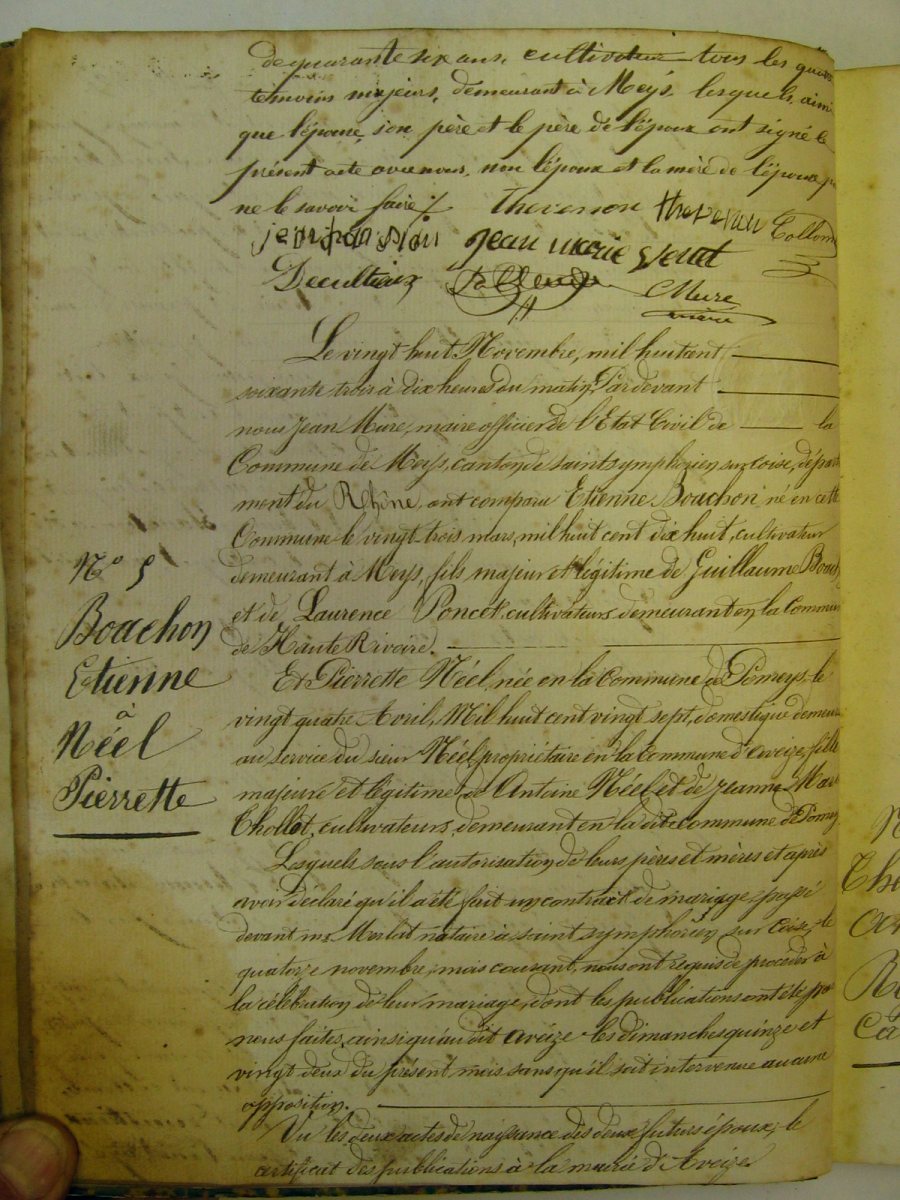 de quarante six ans, cultivateur tous les quatre
temoins majeurs, demeurant à Meys, lesquels, ainsi
que l'épouse, son père et le père de l'époux ont signé le
présent acte avec nous, non l'époux et la mère de l'épouse
ne le savoir faire /.
Thevenon thevenon Collomb
jean Jean marie
Decultieux Mure
maire
Le vingt huit Novembre, mil huit cent
soixante trois à dix heures du matin, Pardevant
nous Jean Mure, maire officier de l'Etat Civil de la
Commune de Meys, canton de Saint symphorien sur coise, départe
ment du Rhône, ont comparu Etienne Bouchon né en cette
Commune le vingt trois mars, mil huit cent dix huit, cultivateur
demeurant à Meys, fils majeur et légitime de Guillaume Bouch
et de Laurence Poncet cultivateurs demeurant en la Commune
de Haute Rivoire.
N° 5
Bouchon
Etienne
à
Néel
Pierrette
Et Pierrette Néel, née en la Commune de Pomeys, le
vingt quatre Avril, Mil huit cent vingt sept, domestique demeu
au service du sieur Néel propriétaire en la Commune d'Aveize, fille
majeure et légitime de Antoine Néel et de Jeanne Mar
Chollet, cultivateurs demeurant en la dite commune de Pomey
Lesquels sous l'autorisation de leurs pères et mères et après
avoir déclaré qu'il a été fait un contract de mariage passé
devant me Merlat notaire à saint symphorien sur Coise, le
quatorze novembre, mois courant, nous ont requis de procéder à
la célébration de leur mariage, dont les publications ont été par
nous faites, ainsi qu'au dit Aveize les dimanches quinze et
vingt deux du présent mois sans qu'il soit intervenue aucune
opposition.
Vu les deux actes de naissance des deux futurs époux, le
certificat des publications à la mairie d'Aveize